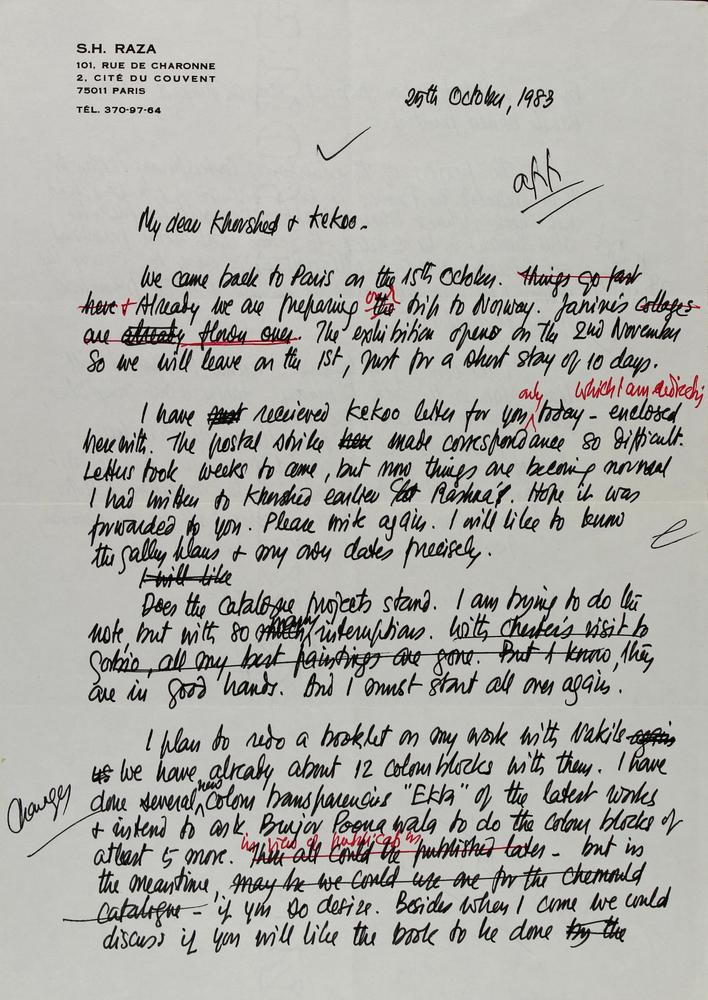 S.H. RAZA
101, RUE DE CHARONNE
2, CITÉ DU COUVENT
75011 PARIS
TÉL. 370-97-64
25th October, 1983
My dear Khorshed & Kekoo.
We came back to Paris on the 15th October. Things go fast
here & Already we are preparing the our trip to Norway. Janine's collages
are already there over. The exhibition opens on the 2nd November
So we will leave on the 1st, just for a short stay of 10 days.
only which I am
I have just recieved Kekoo letter for you, today - enclosed
herewith. The postal strike here made correspondance so difficult.
Letters took weeks to come, but now things are becoming normal
I had written to Khorshed earlier Rashna's. Hope it was
forwarded to you. Please write again. I will like to know
the galley plans & my own dates precisely.
I will like
Does the catalogue projects stand. I am trying to do the
note, but with so much many interuptions. With Chester's visit to
Gorbio, all my best paintings are gone. But I know, they
are in good hands. And I must start all over again.
I plan to redo a booklet on my work with Vakils again
us We have already about 12 colour blocks with them. I have
Changes
done several new Colour transparencies "Ekta" of the latest works
& intend to ask Burjor Poonawala to do the colour blocks of
in view of publication
atleast 5 more. Then all could be published later - but in
the meantime, may be we could use one for the chemould
catalogue - if you so desire. Besides when I come we could
discuss if you will like the book to be done by the